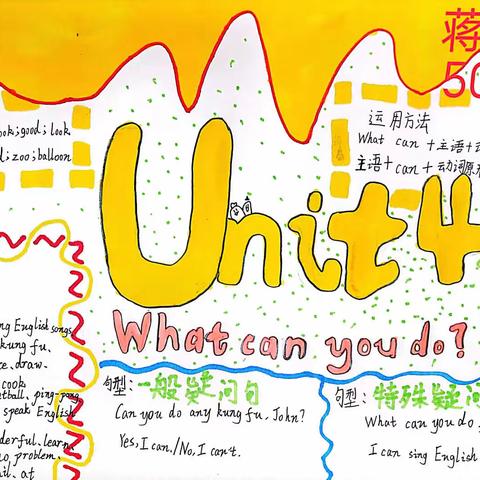 蒋
50
ook;good;look
d;zoo;balloon
运用方法
What can+主语+动
主语+can+动词原
Unit4
What can you do?
ng English songs
kung fu.
ce.draw.
cook
etball, ping-pong
speak English
derful.learn
no problem.
ail. at
句型:一般疑问句
Can you do any kung fu, John?
Yes, I can./No, I can't.
句型:特殊疑问
What can you do,
I can sing English